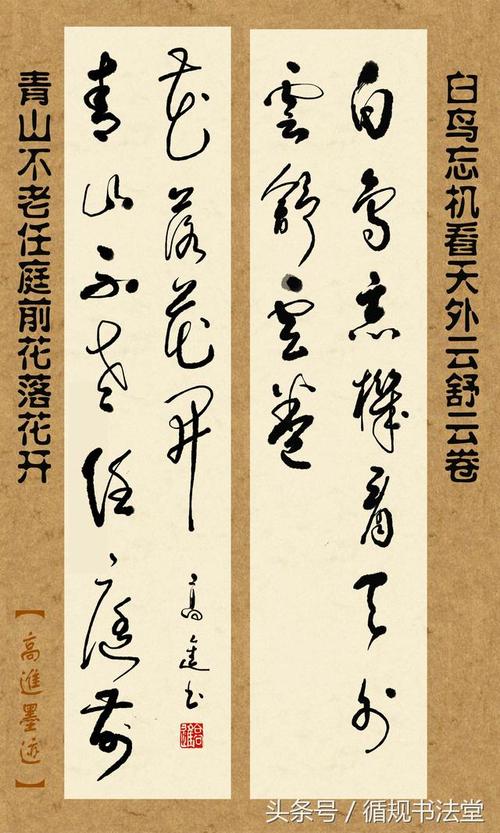 白鸟忘机看天外云舒云卷
白鳥忘機看天外
雲舒云卷
青山不老任庭前
花落花開
高進书
青山不老任庭前花落花开
【高進墨迹】
头条号／循规书法堂